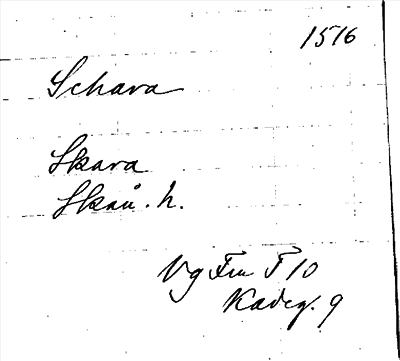 1516
Schara
Skara
Skån. h.
Vg Fru T 10
Kadeg. 9